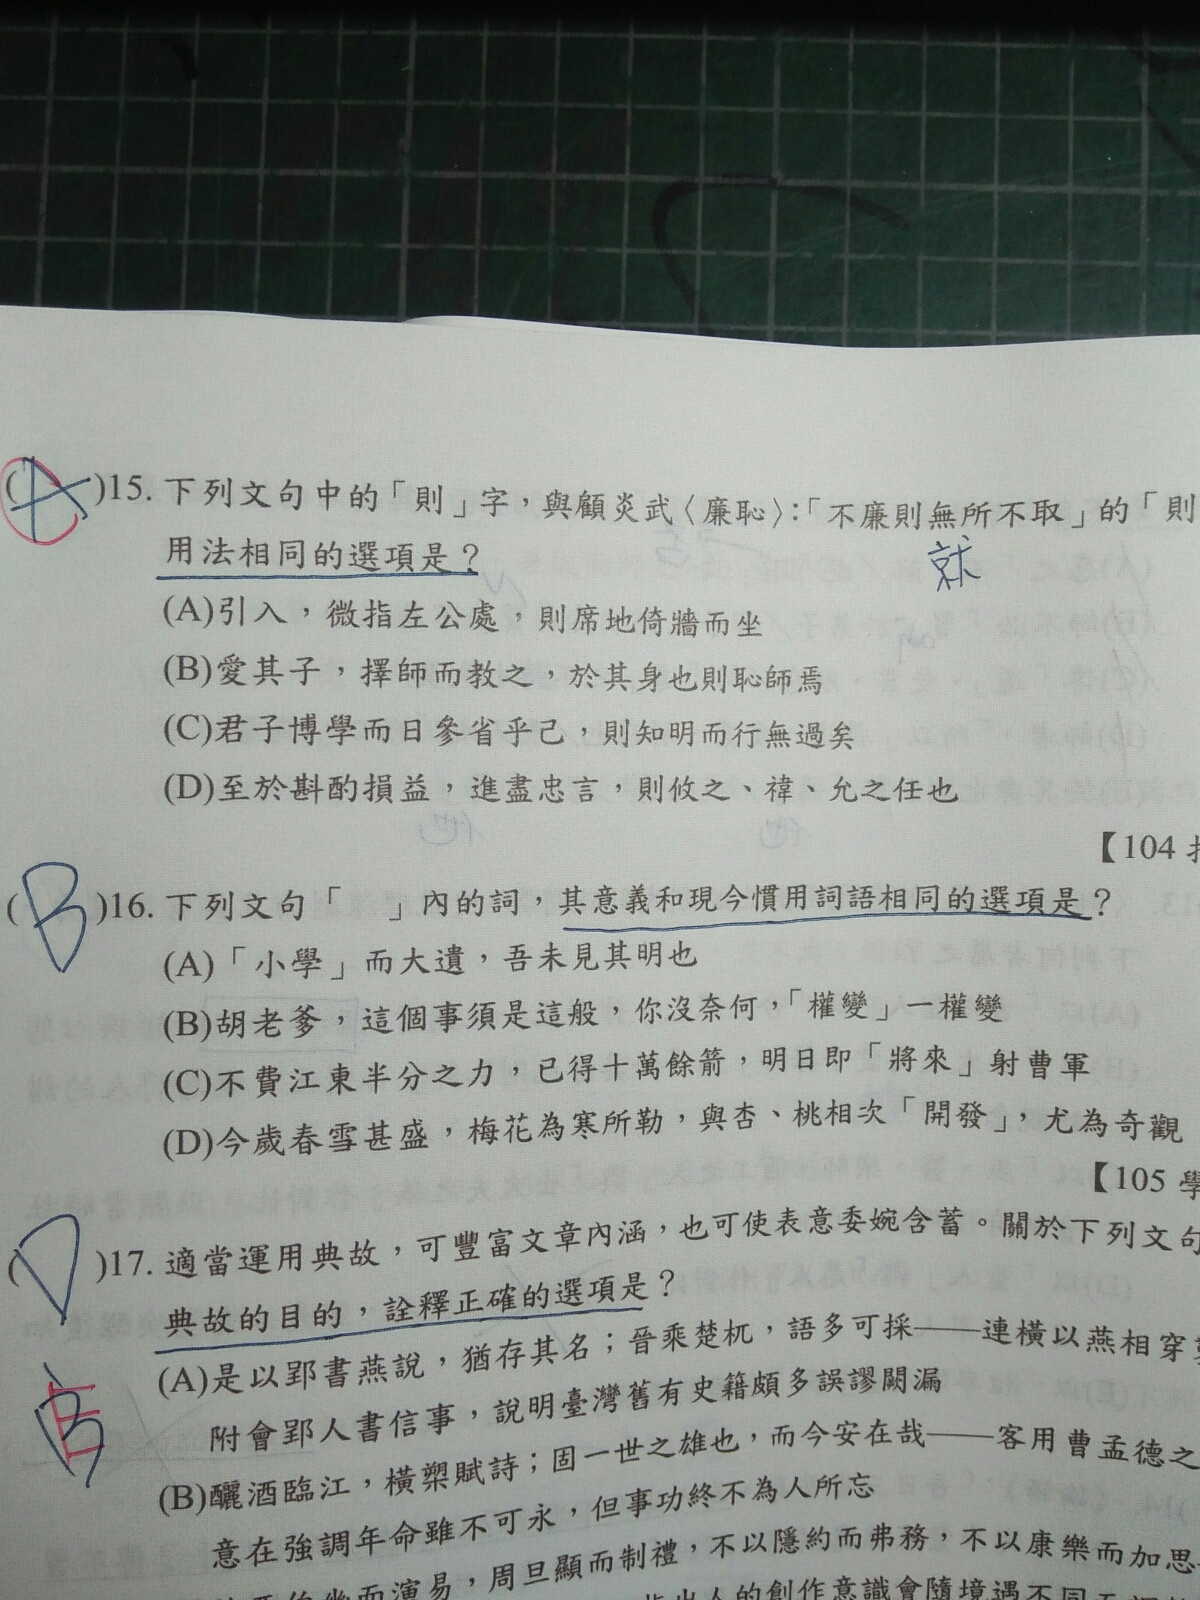 (A)15. 下列文句中的「則」字，與顧炎武〈廉恥〉：「不廉則無所不取」的「則
就
用法相同的選項是？
(A)引入，微指左公處，則席地倚牆而坐
(B)愛其子，擇師而教之，於其身也則恥師焉
(C)君子博學而日參省乎己，則知明而行無過矣
(D)至於斟酌損益，進盡忠言，則攸之、禕、允之任也
【104
(B)16. 下列文句「　」內的詞，其意義和現今慣用詞語相同的選項是？
(A)「小學」而大遺，吾未見其明也
(B)胡老爹，這個事須是這般，你沒奈何，「權變」一權變
(C)不費江東半分之力，已得十萬餘箭，明日即「將來」射曹軍
(D)今歲春雪甚盛，梅花為寒所勒，與杏、桃相次「開發」，尤為奇觀
【105 學
(D)17. 適當運用典故，可豐富文章內涵，也可使表意委婉含蓄。關於下列文句
典故的目的，詮釋正確的選項是？
(A)是以郢書燕說，猶存其名；晉乘楚杌，語多可採——連橫以燕相穿
附會郢人書信事，說明臺灣舊有史籍頗多誤謬闕漏
(B)釃酒臨江，橫槊賦詩；固一世之雄也，而今安在哉——客用曹孟德之
意在強調年命雖不可永，但事功終不為人所忘
而演易，周旦顯而制禮，不以隱約而弗務，不以康樂而加思
指出人的創作意識會隨境遇不同